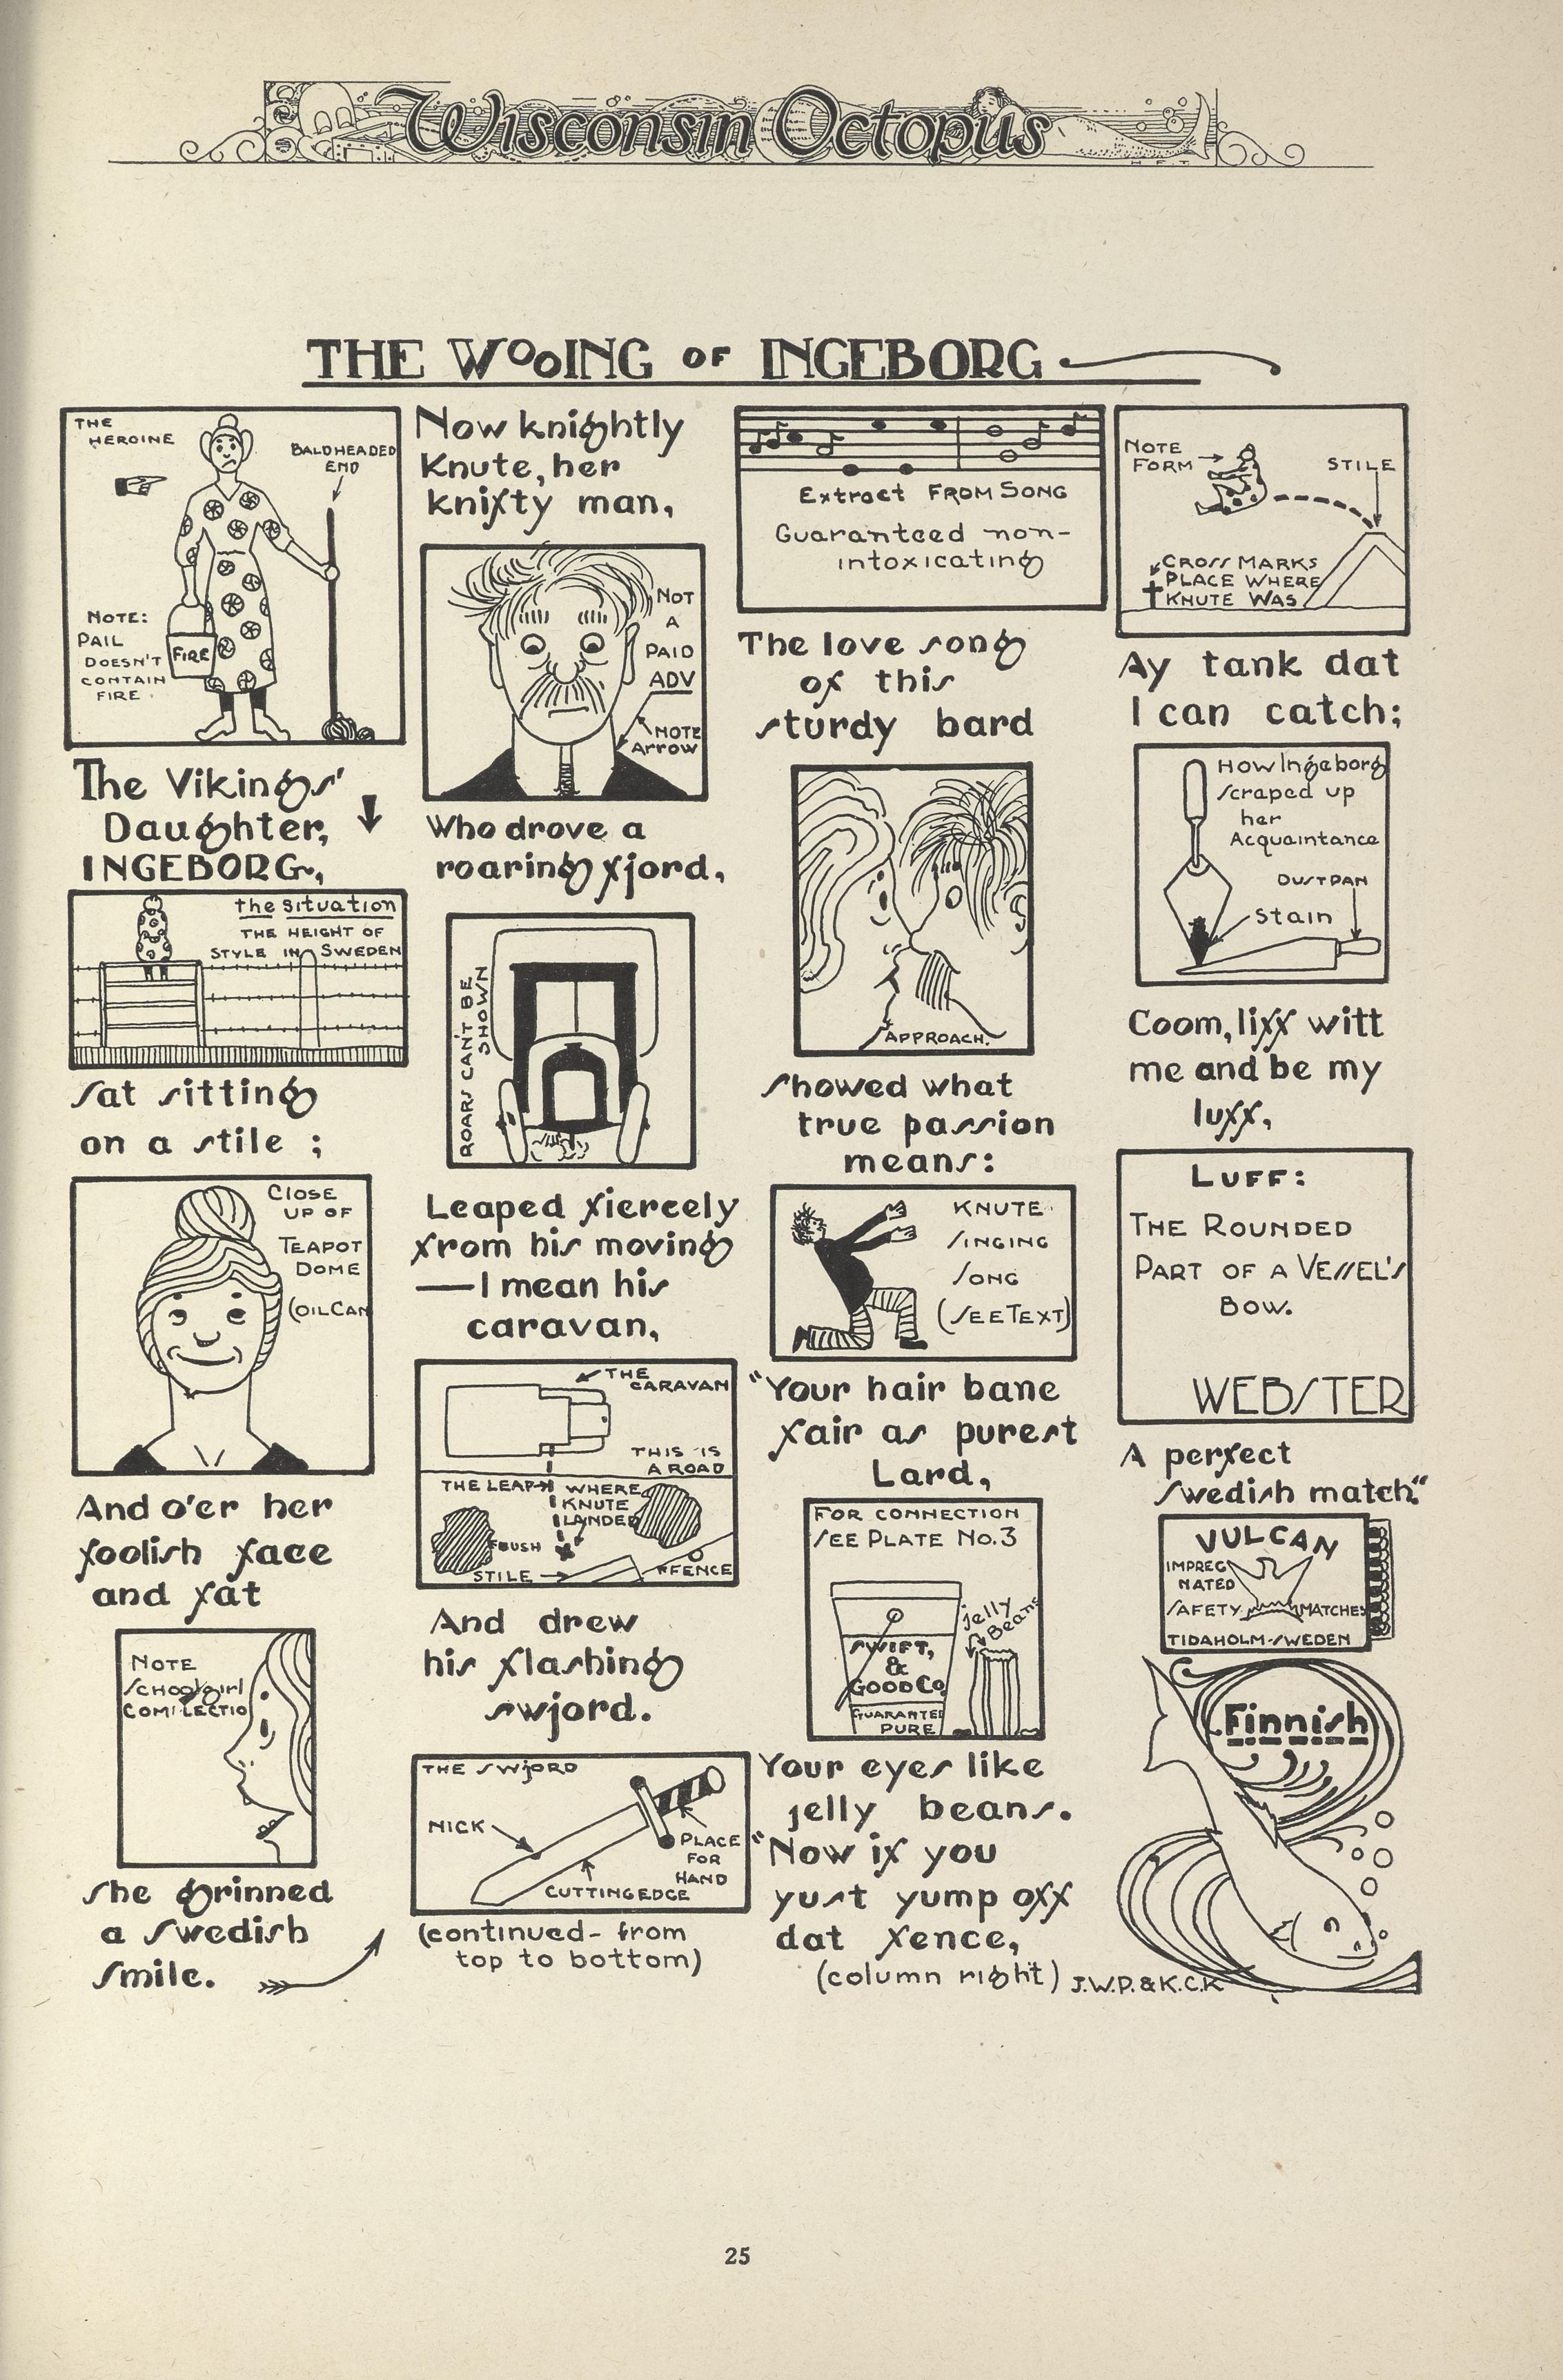 Wisconsin Octopus
H F T
THE WOOING OF INGEBORG
THE
HEROINE
BALDHEADED
END
NOTE:
PAIL
DOESN'T
CONTAIN
FIRE
FIRE
The Vikings'
Daughter,
INGEBORG,
the situation
THE HEIGHT OF
STYLE IN SWEDEN
Sat sitting
on a stile ;
CLOSE
UP OF
TEAPOT
DOME
(OILCAN
And o'er her
foolish face
and fat
NOTE
Schoolgirl
COMPLECTIO
She grinned
a Swedish
Smile.
Now knightly
Knute, her
knifty man,
NOT
A
PAID
ADV
NOTE
ARROW
Who drove a
roaring fjord,
ROARS CAN'T BE
SHOWN
Leaped fiercely
from his moving
—I mean his
caravan,
THE
CARAVAN
THIS IS
A ROAD
THE LEAP
WHERE
KNUTE
LANDED
BUSH
STILE
FENCE
And drew
his flashing
swjord.
THE SWJORD
NICK
PLACE
FOR
HAND
CUTTING EDGE
(continued- from
top to bottom)
Extract FROM SONG
Guaranteed non-
intoxicating
The love song
of this
sturdy bard
APPROACH.
Showed what
true passion
means:
KNUTE
SINGING
SONG
(SEE TEXT)
"Your hair bane
fair as purest
Lard,
FOR CONNECTION
SEE PLATE NO.3
SWIFT,
&
GOOD CO
GUARANTEE
PURE
jelly
Beans
Your eyes like
jelly beans.
"Now if you
yust yump off
dat fence,
(column right)
NOTE
FORM
STILE
CROSS MARKS
PLACE WHERE
KNUTE WAS
Ay tank dat
I can catch;
How Ingeborg
scraped up
her
Acquaintance
DUSTPAN
Stain
Coom, liff witt
me and be my
luff,
LUFF:
THE ROUNDED
PART OF A VESSEL'S
BOW.
WEBSTER
A perfect
Swedish match."
VULCAN
IMPREG
NATED
SAFETY MATCHES
TIDAHOLM-SWEDEN
Finnish
J.W.P. & K.C.K
25